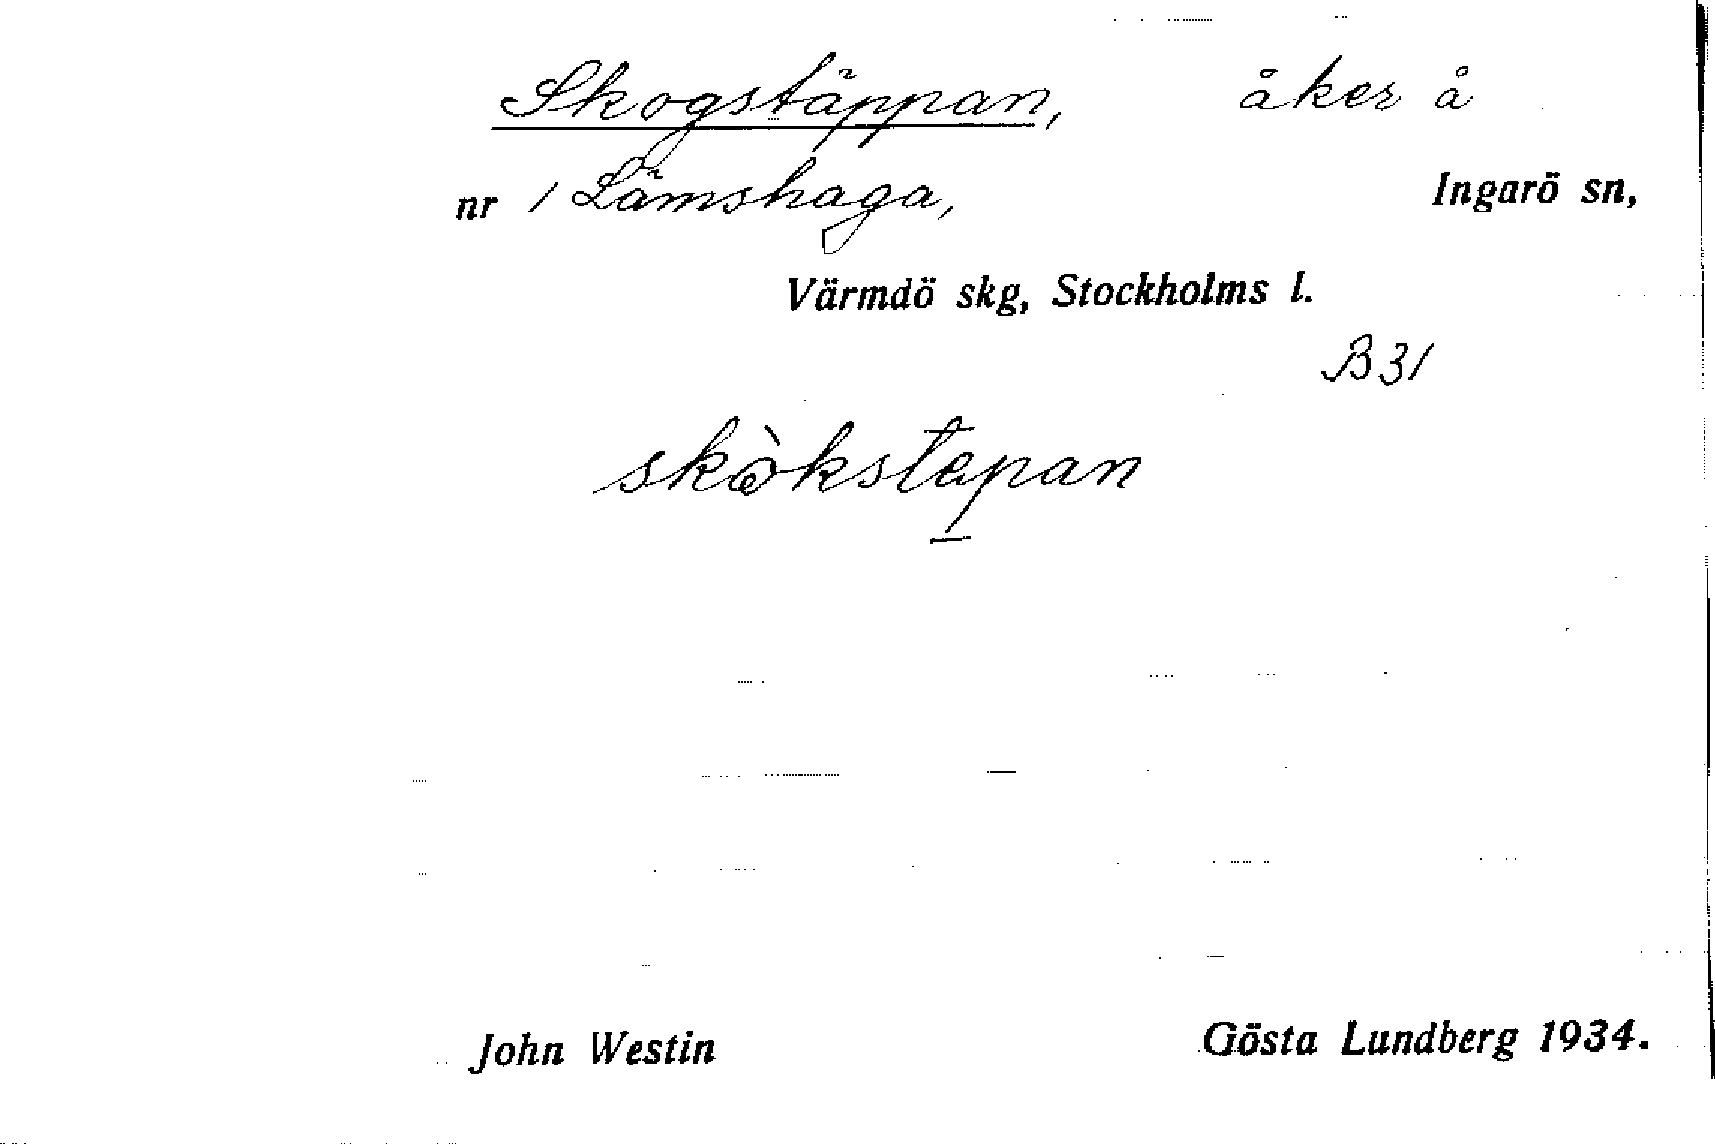 Skogstäppan, åker å
nr 1 Lämshaga, Ingarö sn,
Värmdö skg, Stockholms l.
B31
skòkstepan
John Westin Gösta Lundberg 1934.